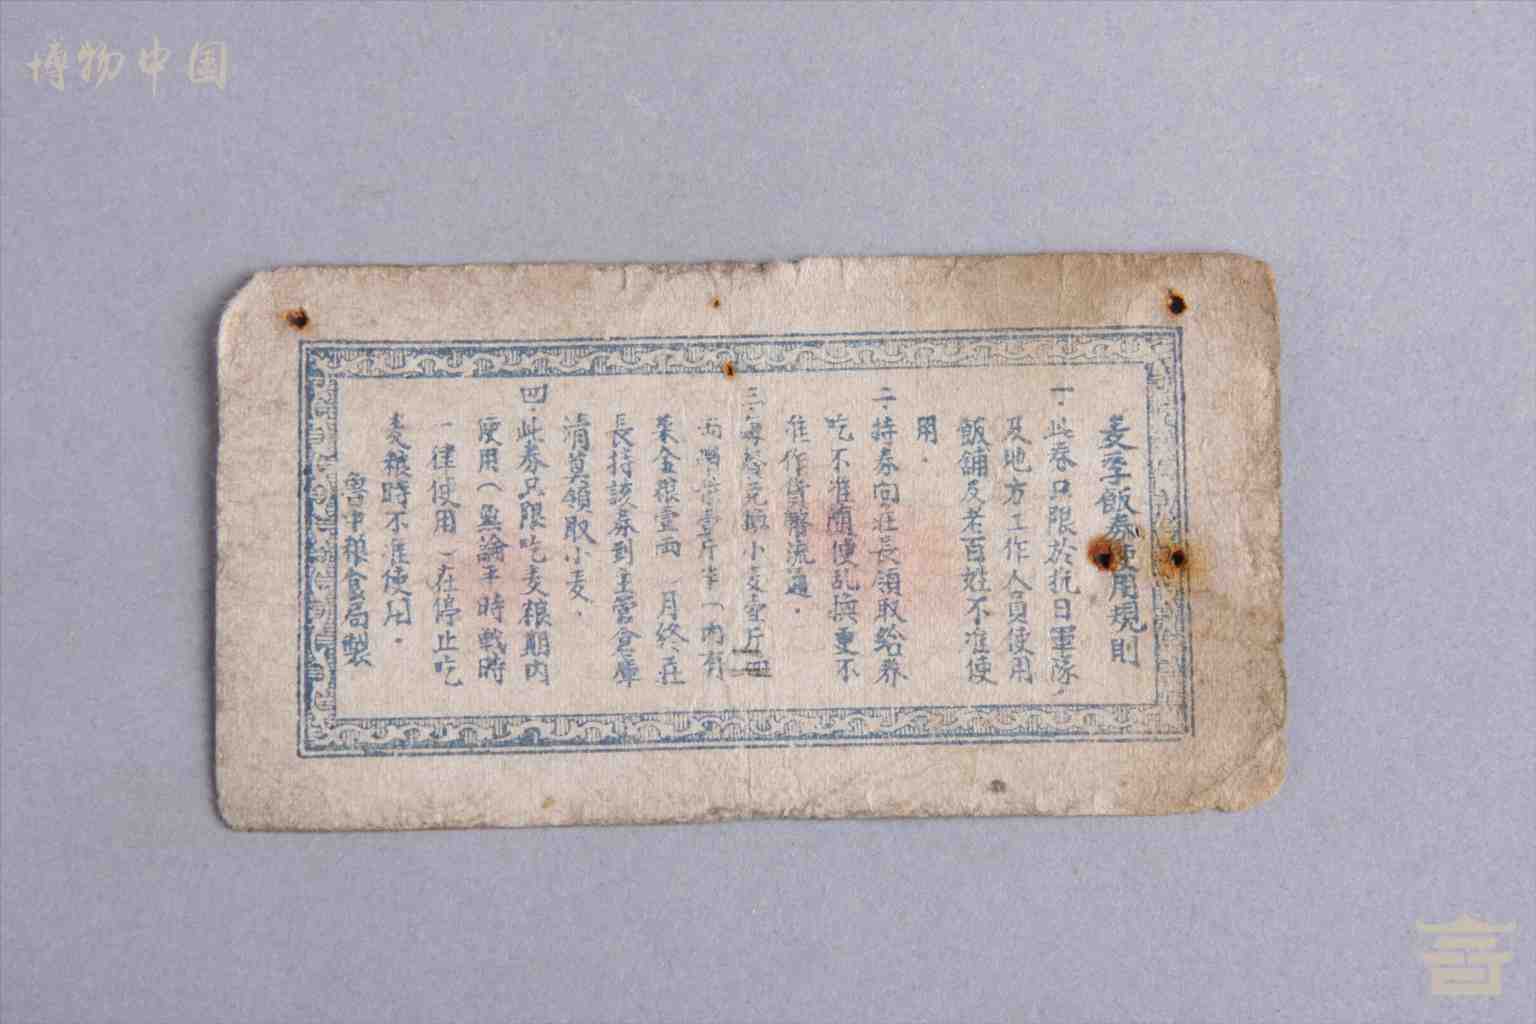 博物中国
麦季飯券使用規則
一．此券只限於抗日軍隊，
及地方工作人員使用
飯舖及老百姓不准使
用．
二．持券向庄長領取給养
吃不准随便乱换更不
准作貨幣流通．
三．每券兑换小麦壹斤四
两 壹斤半（内有
菜金粮壹两）月终庄
長持該券到主管倉庫
清算領取小麦．
四．此券只限吃麦粮期内
使用（無論平時戰時
一律使用）在停止吃
麦粮時不准使用．
魯中粮食局製